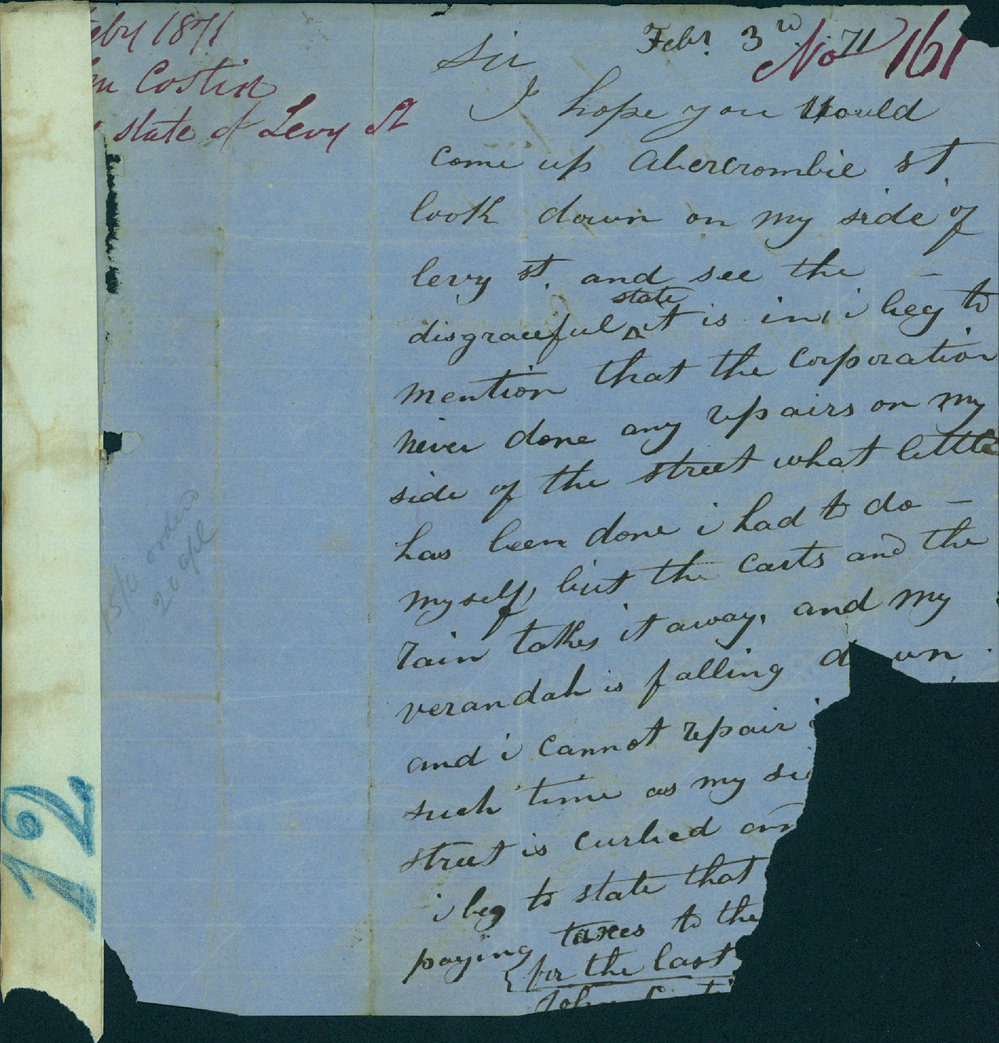 eby 1871
hn Costin
state of Levy St
Febr. 3rd 71
No 161
Sir
I hope you Would
come up Abercrombie st.
look down on my side of
levy st. and see the –
state
disgraceful it is in, i beg to
mention that the Corporation
never done any repairs on my
side of the street what little
has been done i had to do –
myself, but the carts and the
rain takes it away, and my
verandah is falling down
and i cannot repair i
such time as my si
street is curbed and
i beg to state that
paying taxes to the
for the last
John C
orders
20 apl
12